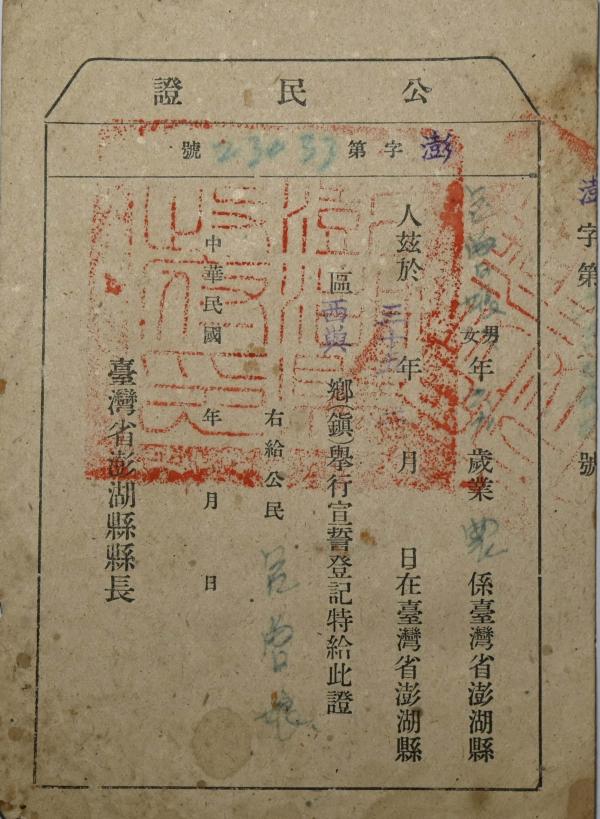 公民證
澎字第23033號
呂曾娘 男女年歲業農 係臺灣省澎湖縣
人茲於三十五年 月 日在臺灣省澎湖縣
區西嶼鄉(鎮)舉行宣誓登記特給此證
右給公民 呂曾娘
中華民國 年 月 日
臺灣省澎湖縣縣長
澎字第 號